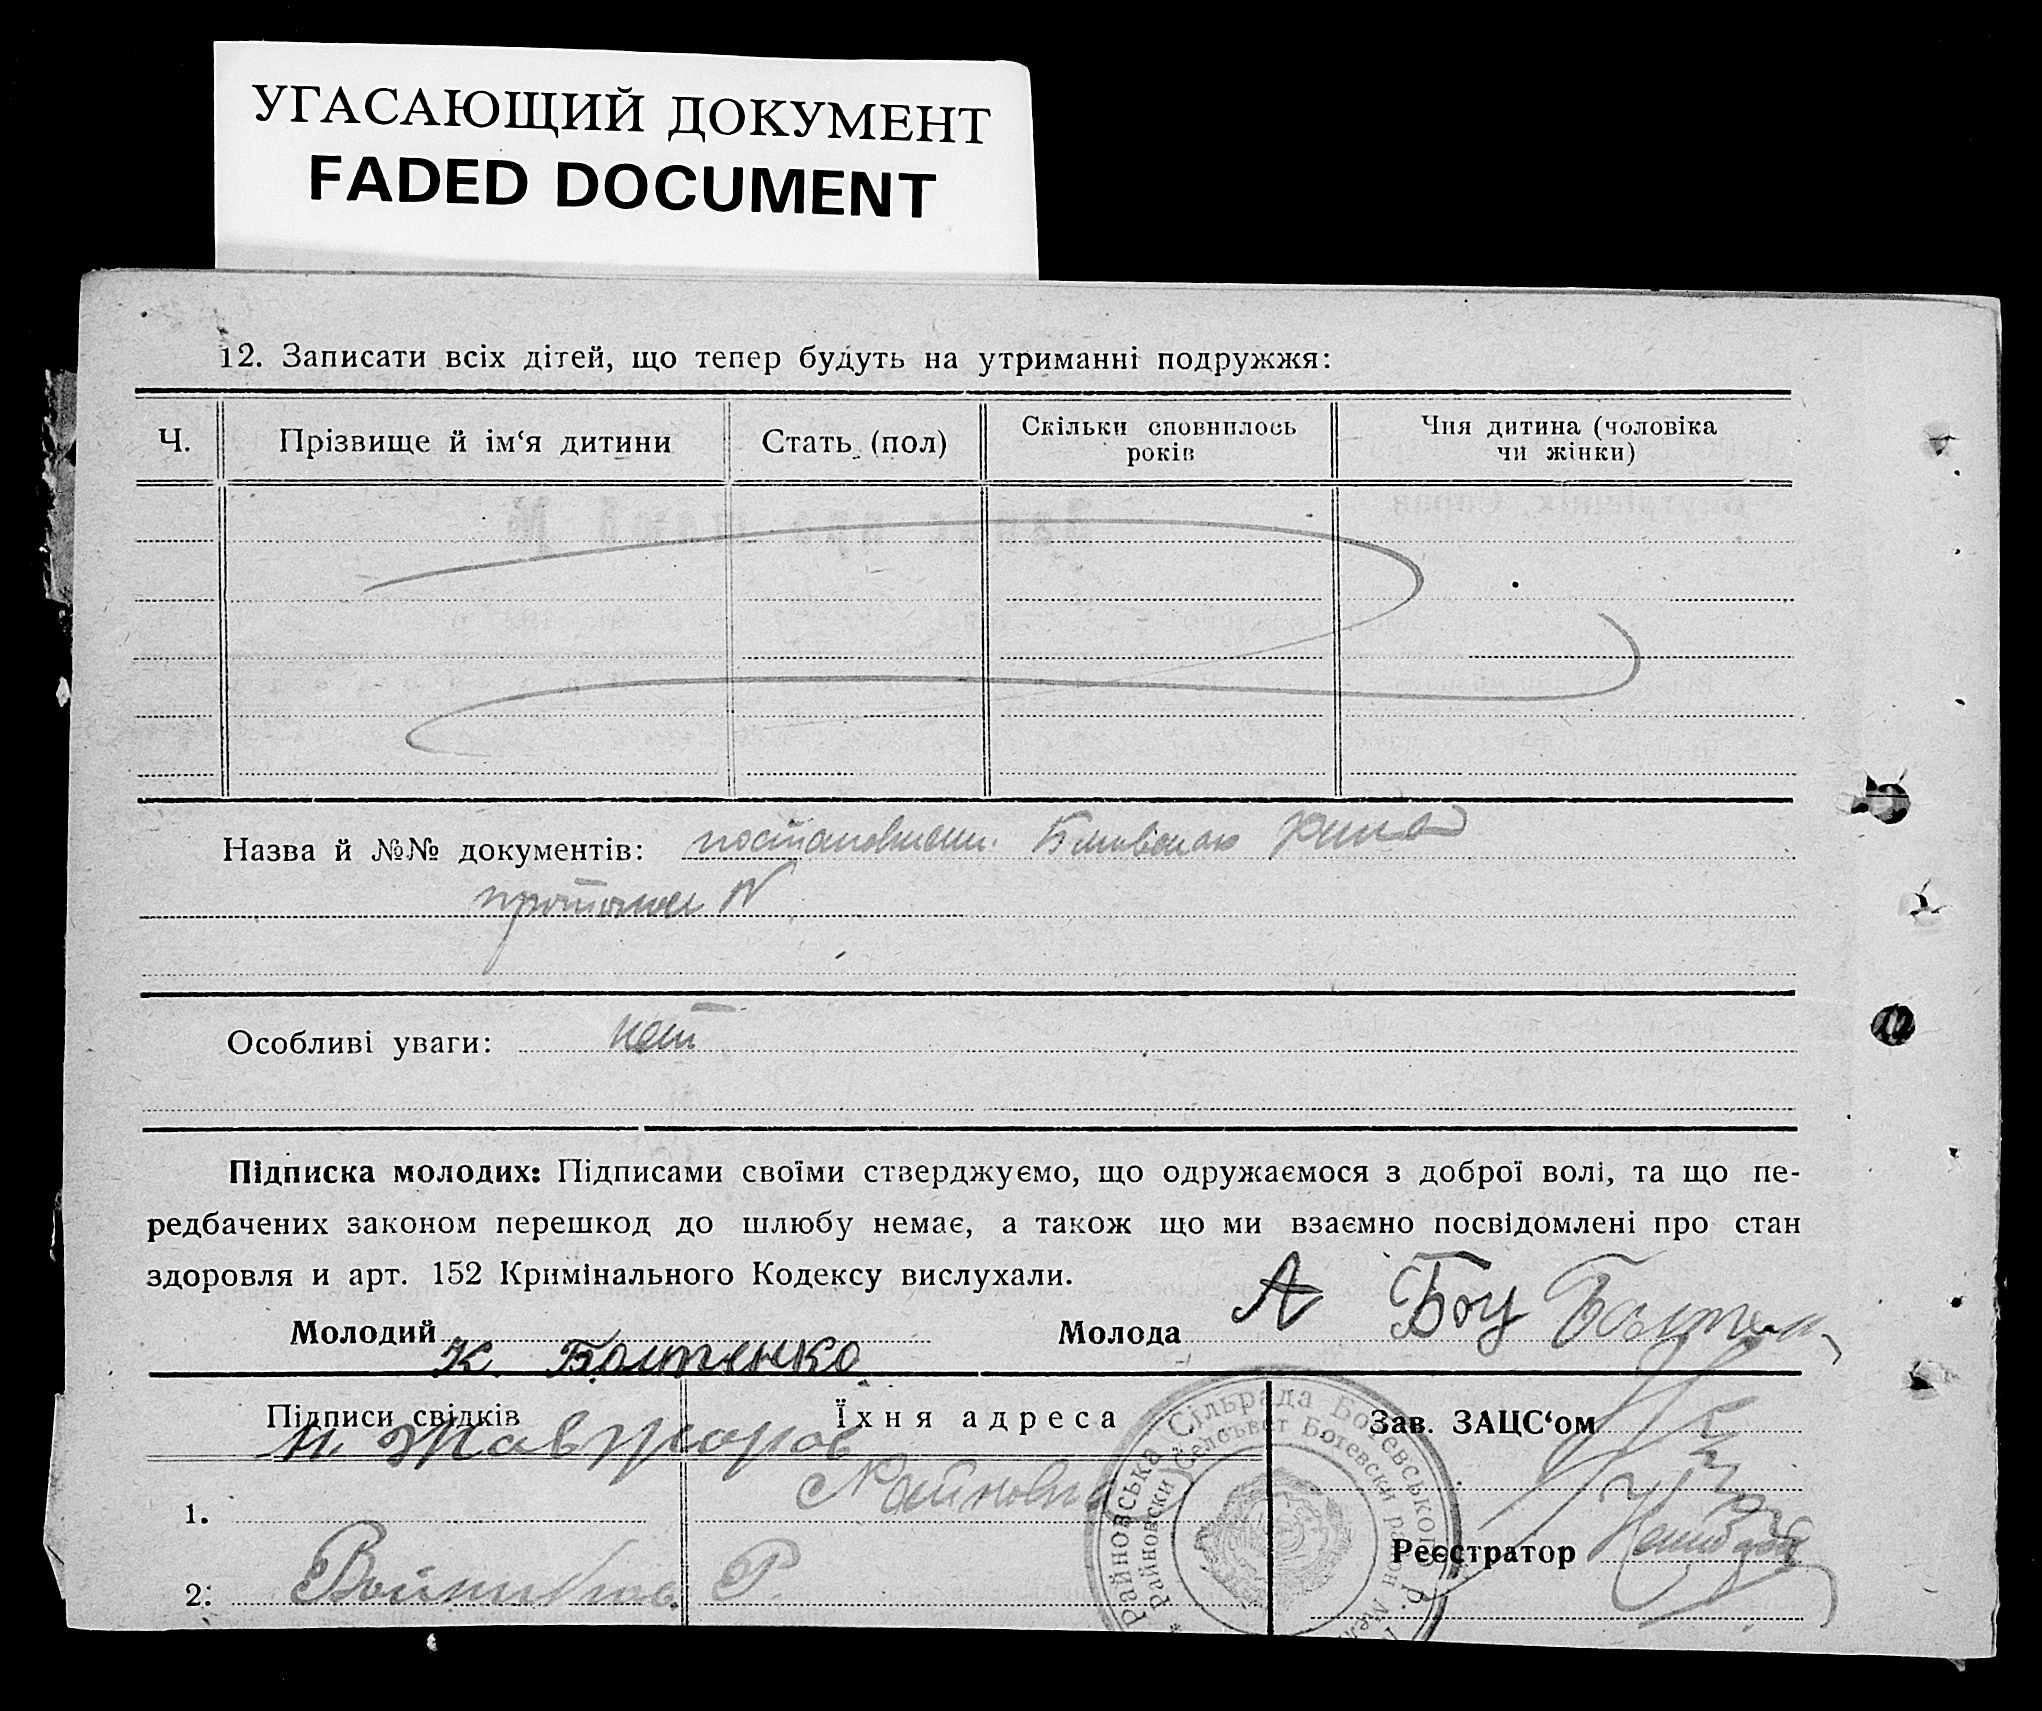 УГАСАЮЩИЙ ДОКУМЕНТ
FADED DOCUMENT
12. Записати всіх дітей, що тепер будуть на утриманні подружжя:
Ч. Прізвище й ім‘я дитини Стать (пол) Скільки сповнилось років Чия дитина (чоловіка чи жінки)
Назва й №№ документів:
протокол N
Особливі уваги: нет
Підписка молодих: Підписами своїми стверджуємо, що одружаємося з доброї волі, та що пе-
редбачених законом перешкод до шлюбу немає, а також що ми взаємно посвідомлені про стан
здоровля и арт. 152 Кримінального Кодексу вислухали.
Молодий К. Болтенко Молода А Боу
Підписи свідків Їхня адреса Зав. ЗАЦС‘ом
1.
2. Р. Реєстратор
Райновська Сільрада Ботевського Р.
Райновски Селсъвет Ботевски район